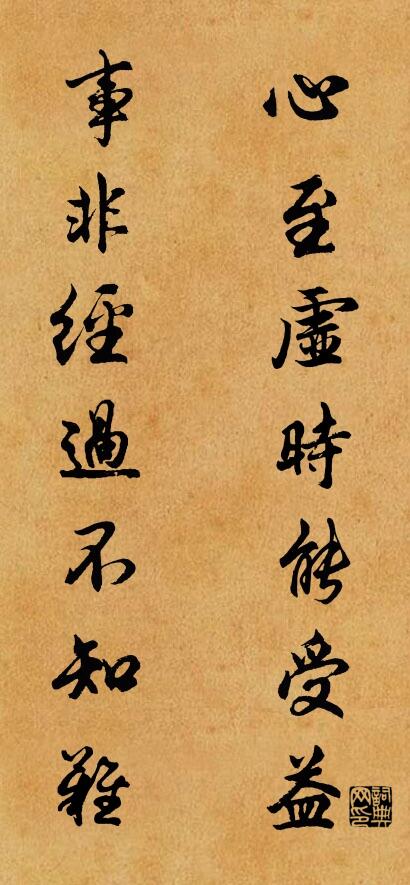 心至虛時能受益
事非經過不知難
詞典
网印